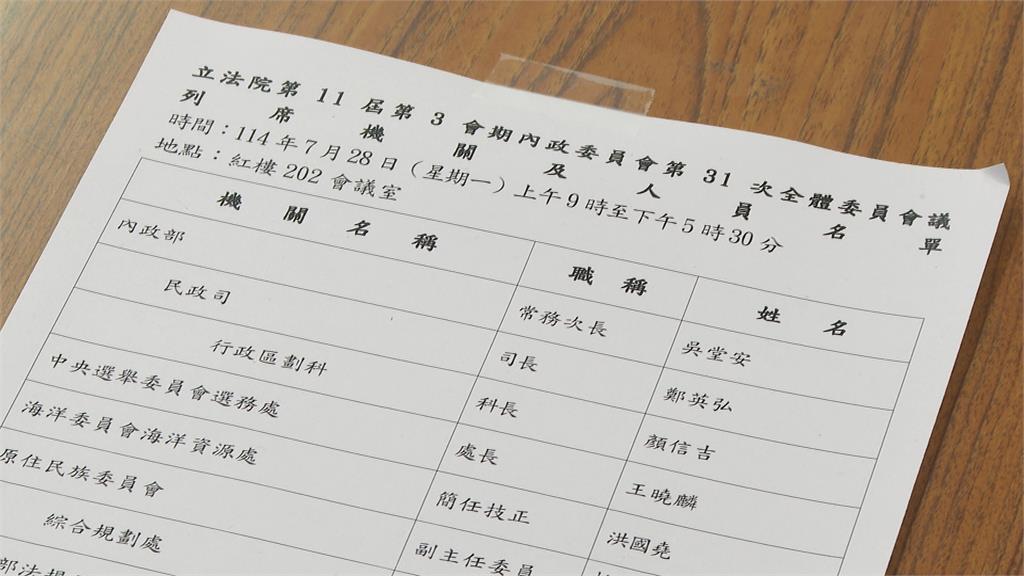 立法院第 11 屆第 3 會期內政委員會第 31 次全體委員會議
列席機關及人員名單
時間：114 年 7 月 28 日（星期一）上午 9 時至下午 5 時 30 分
地點：紅樓 202 會議室
機關名稱 職稱 姓名
內政部 常務次長 吳堂安
民政司 司長 鄭英弘
行政區劃科 科長 顏信吉
中央選舉委員會選務處 處長 王曉麟
海洋委員會海洋資源處 簡任技正 洪國堯
原住民族委員會 副主任委員
綜合規劃處
部法規